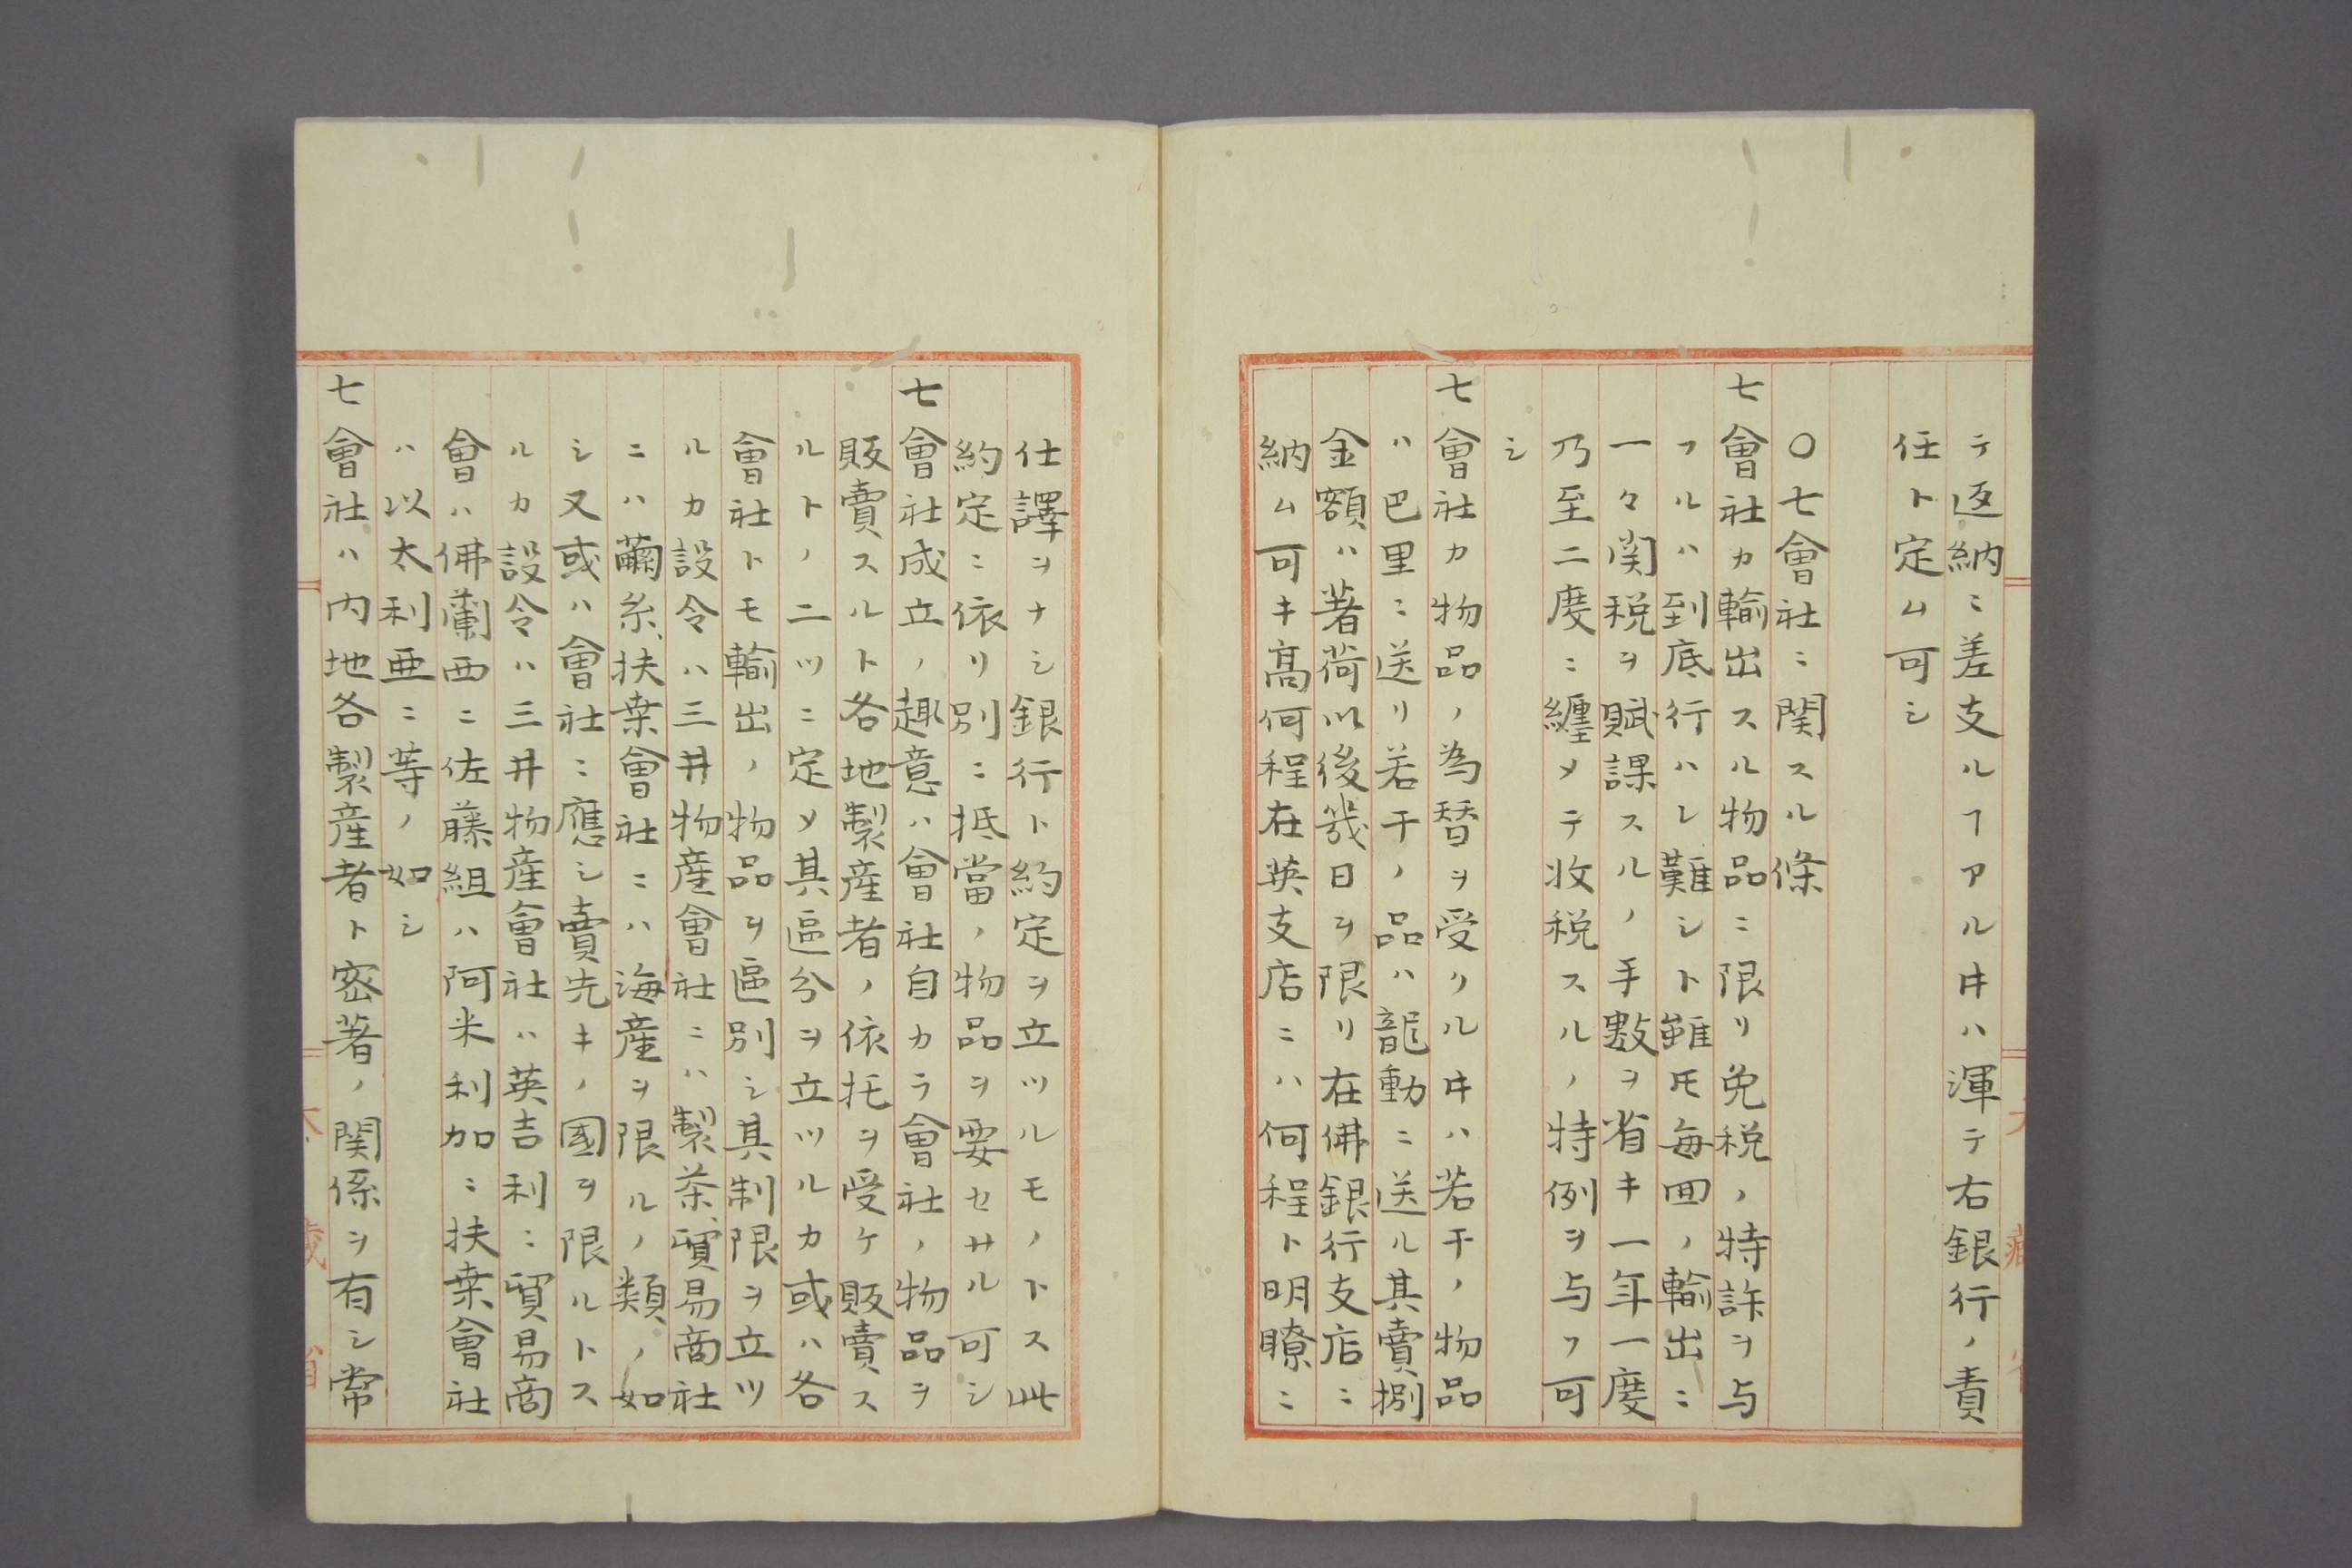 テ返納ニ差支ルヿアルヰハ渾テ右銀行ノ責
任ト定ム可シ
〇七會社ニ関スル條
七會社カ輸出スル物品ニ限リ免税ノ特許ヲ与
フルハ到底行ハレ難シト雖𪜈毎回ノ輸出ニ
一々関税ヲ賦課スルノ手數ヲ省キ一年一度
乃至二度ニ纏メテ收税スルノ特例ヲ与フ可
シ
七會社カ物品ノ為替ヲ受クルヰハ若干ノ物品
ハ巴里ニ送リ若干ノ品ハ龍動ニ送ル其賣捌
金額ハ著荷以後幾日ヲ限リ在佛銀行支店ニ
納ム可キ髙何程在英支店ニハ何程ト明瞭ニ
仕譯ヲナシ銀行ト約定ヲ立ツルモノトス此
約定ニ依リ別ニ抵當ノ物品ヲ要セサル可シ
七會社成立ノ趣意ハ會社自カラ會社ノ物品ヲ
販賣スルト各地製産者ノ依托ヲ受ケ販賣ス
ルトノ二ツニ定メ其區分ヲ立ツルカ或ハ各
會社トモ輸出ノ物品ヲ區別シ其制限ヲ立ツ
ルカ設令ハ三井物産會社ニハ製茶貿易商社
ニハ繭糸扶桒會社ニハ海産ヲ限ルノ類ノ如
シ又或ハ會社ニ應シ賣先キノ國ヲ限ルトス
ルカ設令ハ三井物産會社ハ英吉利ニ貿易商
會ハ佛蘭西ニ佐藤組ハ阿米利加ニ扶桒會社
ハ以太利亜ニ等ノ如シ
七會社ハ内地各製産者ト密著ノ関係ヲ有シ常